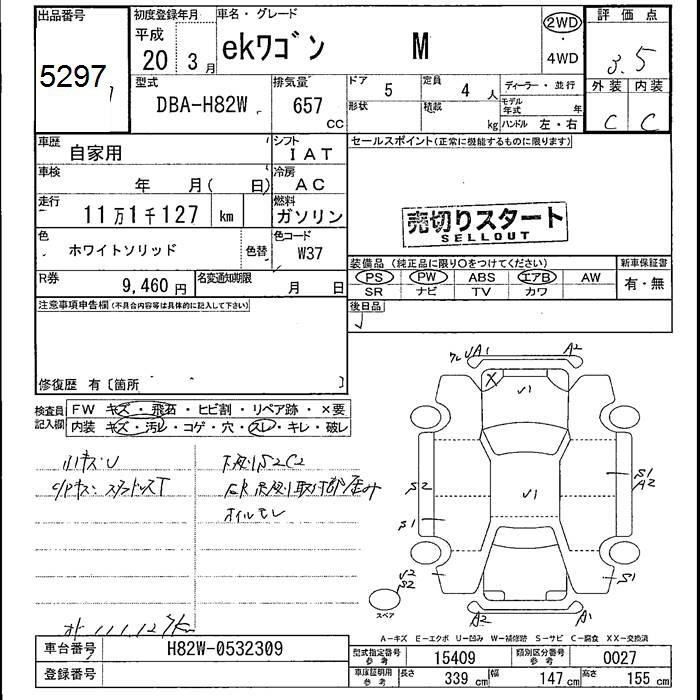 出品番号
5297
初度登録年月
平成
20年 3月
車名・グレード
ekワゴン M
2WD
・
4WD
評価点
3.5
外装 内装
C C
型式
DBA-H82W
排気量
657
CC
ドア
5
定員
4人
形状
積載
kg
ディーラー・並行
モデル年式
年
ハンドル 左・右
車歴
自家用
シフト
IAT
車検
年 月( 日)
冷房
AC
走行
11万1千127 km
燃料
ガソリン
色
ホワイトソリッド
色替
色コード
W37
R券
9,460円
名変通知期限
月 日
セールスポイント(正常に機能するものに限ります)
売切りスタート
SELLOUT
装備品(純正品に限り○をつけてください)
新車保証書
PS PW ABS エアB AW
SR ナビ TV カワ
有・無
後日品
注意事項申告欄(不具合内容等は具体的に記入して下さい)
修復歴 有〔箇所 〕
検査員記入欄
FW キズ・飛石・ヒビ割・リペア跡・×要
内装 キズ・汚レ・コゲ・穴・スレ・キレ・破レ
小キズU
下廻りS2C2
オイルモレ
A1
A2
U1
S2
S1
U1
S1
A2
U2
S2
S1
スペア
A2
A1
A-キズ E-エクボ U-凹み W-補修跡 S-サビ C-腐食 XX-交換済
車台番号
H82W-0532309
登録番号
型式指定番号
参考
15409
類別区分番号
参考
0027
車庫証明用
参考
長さ
339 cm
幅
147 cm
高さ
155 cm